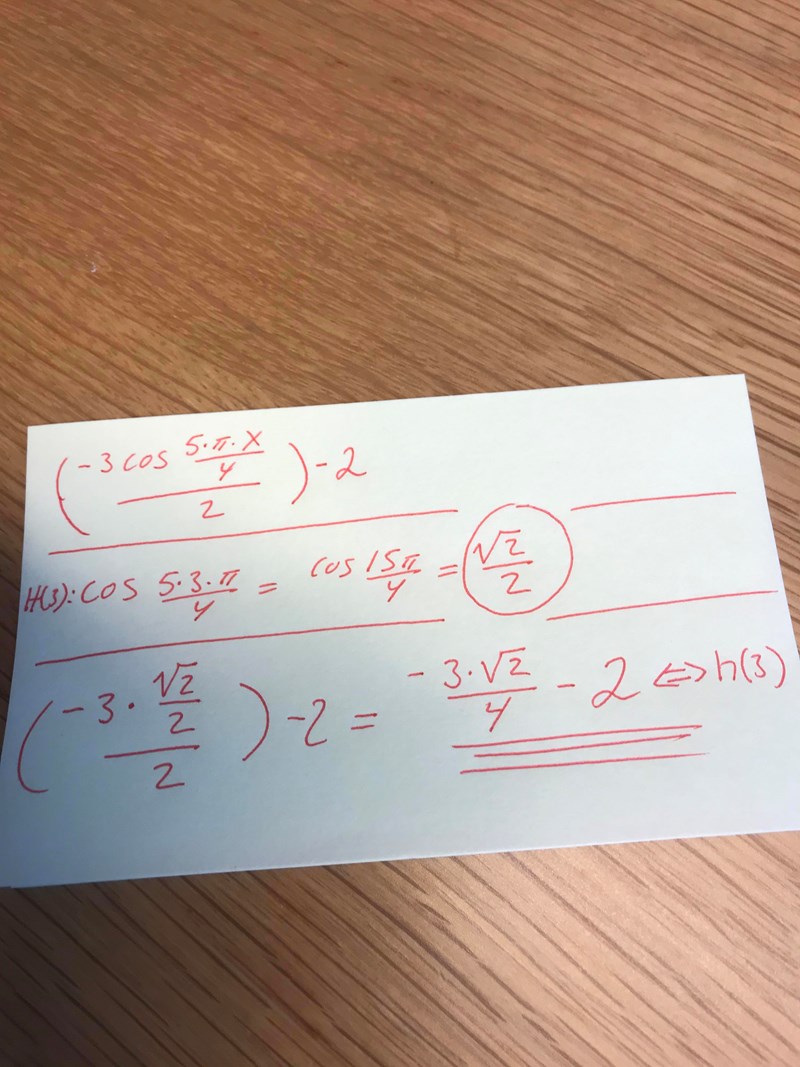 (-3cos 5·π·x/4 / 2) - 2
H(3): cos 5·3·π/4 = cos 15π/4 = √2/2
(-3·√2/2 / 2) - 2 = -3·√2/4 - 2 ⇔ h(3)